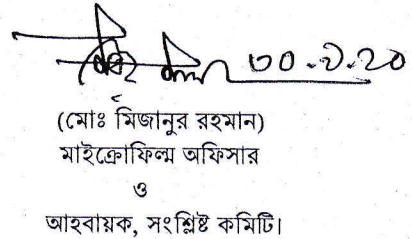 ৩০.৯.২০
(মোঃ মিজানুর রহমান)
মাইক্রোফিল্ম অফিসার
ও
আহবায়ক, সংশ্লিষ্ট কমিটি।